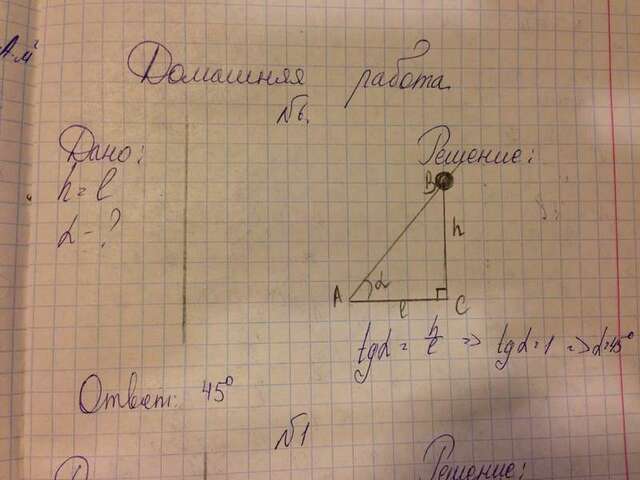 А·м²
Домашняя работа
№6.
Дано:
h = l
α - ?
Решение:
B
h
α
A
l
C
tgα = h/l => tgα = 1 => α = 45°
Ответ: 45°
№1
Решение: